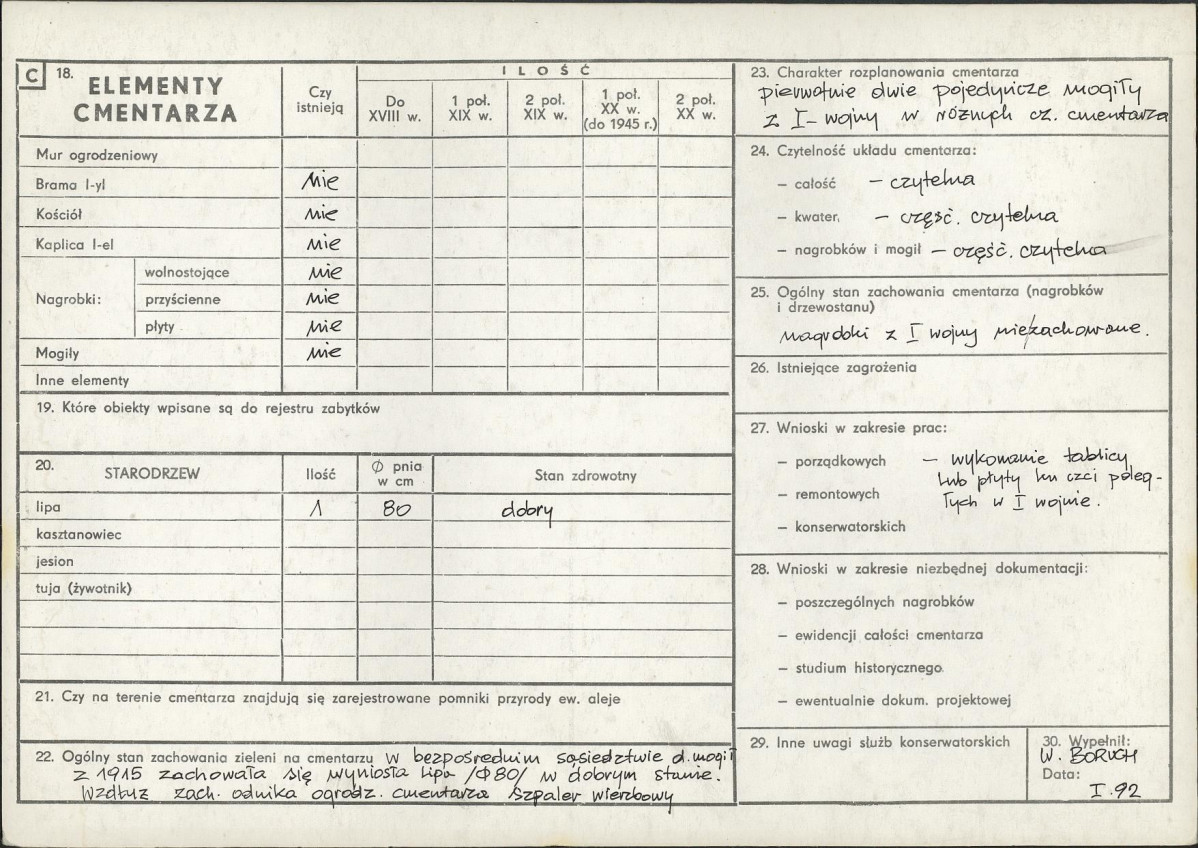 C 18. ELEMENTY CMENTARZA
Czy istnieją
ILOŚĆ
Do XVIII w.
1 poł. XIX w.
2 poł. XIX w.
1 poł. XX w. (do 1945 r.)
2 poł. XX w.
Mur ogrodzeniowy
Brama l-yl nie
Kościół nie
Kaplica l-el nie
Nagrobki: wolnostojące nie
przyścienne nie
płyty nie
Mogiły nie
Inne elementy
19. Które obiekty wpisane są do rejestru zabytków
20. STARODRZEW Ilość Φ pnia w cm Stan zdrowotny
lipa 1 80 dobry
kasztanowiec
jesion
tuja (żywotnik)
21. Czy na terenie cmentarza znajdują się zarejestrowane pomniki przyrody ew. aleje
22. Ogólny stan zachowania zieleni na cmentarzu w bezpośrednim sąsiedztwie d. mogił
z 1915 zachowała się wyniosła lipa /Φ80/ w dobrym stanie.
Wzdłuż zach. odnika ogrodz. cmentarza szpaler wierzbowy
23. Charakter rozplanowania cmentarza
pierwotnie dwie pojedyńcze mogiły
z I-wojny w różnych cz. cmentarza
24. Czytelność układu cmentarza:
– całość – czytelna
– kwater. – część. czytelna
– nagrobków i mogił – część. czytelna
25. Ogólny stan zachowania cmentarza (nagrobków
i drzewostanu)
nagrobki z I wojny nie/zachowane.
26. Istniejące zagrożenia
27. Wnioski w zakresie prac:
– porządkowych – wykonanie tablicy
lub płyty ku czci poleg-
– remontowych łych w I wojnie.
– konserwatorskich
28. Wnioski w zakresie niezbędnej dokumentacji:
– poszczególnych nagrobków
– ewidencji całości cmentarza
– studium historycznego
– ewentualnie dokum. projektowej
29. Inne uwagi służb konserwatorskich
30. Wypełnił:
W. BORUCH
Data:
I.92